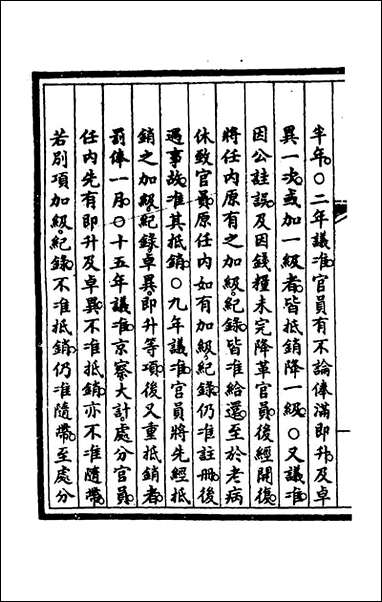 半年○二年議准官員有不論俸滿即升及卓
異一次或加一級者皆抵銷降一級○又議准
因公詿誤及因錢糧未完降革官員後經開復
將任內原有之加級紀錄皆准給還至於老病
休致官員原任內如有加級紀錄仍准註冊後
遇事故准其抵銷○九年議准官員將先經抵
銷之加級紀錄卓異即升等項後又重抵銷者
罰俸一月○十五年議准京察大計處分官員
任內先有即升及卓異不准抵銷亦不准隨帶
若別項加級紀錄不准抵銷仍准隨帶至處分